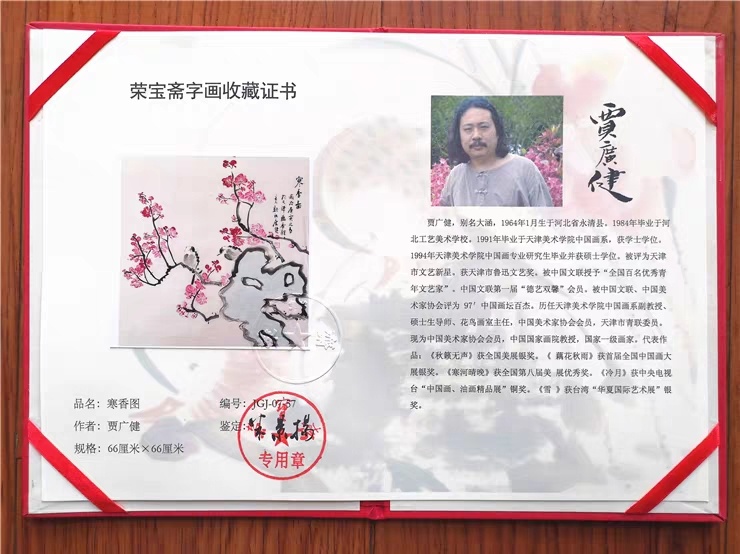 荣宝斋字画收藏证书
寒香图
品名：寒香图
作者：贾广健
规格：66厘米×66厘米
编号：JGJ-07-57
鉴定：
专用章
賈廣健
贾广健，别名大涵，1964年1月生于河北省永清县，1984年毕业于河
北工艺美术学校，1991年毕业于天津美术学院中国画系，获学士学位。
1994年天津美术学院中国画专业研究生毕业并获硕士学位。被评为天津
市文艺新星、获天津市鲁迅文艺奖。被中国文联授予“全国百名优秀青
年文艺家”。中国文联第一届“德艺双馨”会员。被中国文联、中国美
术家协会评为 97’中国画坛百杰。历任天津美术学院中国画系副教授、
硕士生导师、花鸟画室主任，中国美术家协会会员，天津市青联委员。
现为中国美术家协会会员，中国国家画院教授，国家一级画家。代表作
品：《秋籁无声》获全国美展银奖。《 藕花秋雨》获首届全国中国画大
展银奖。《寒河晴晚》获全国第八届美 展优秀奖。《冷月》获中央电视
台“中国画、油画精品展”铜奖。《雪 》获台湾“华夏国际艺术展”银
奖。